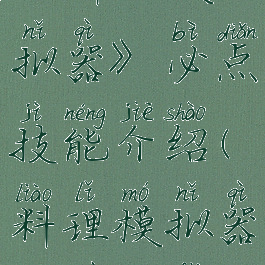 nǐ qì bì diǎn
拟器》必点
jì néng jiè shào
技能介绍(
liào lǐ mó nǐ qì
料理模拟器